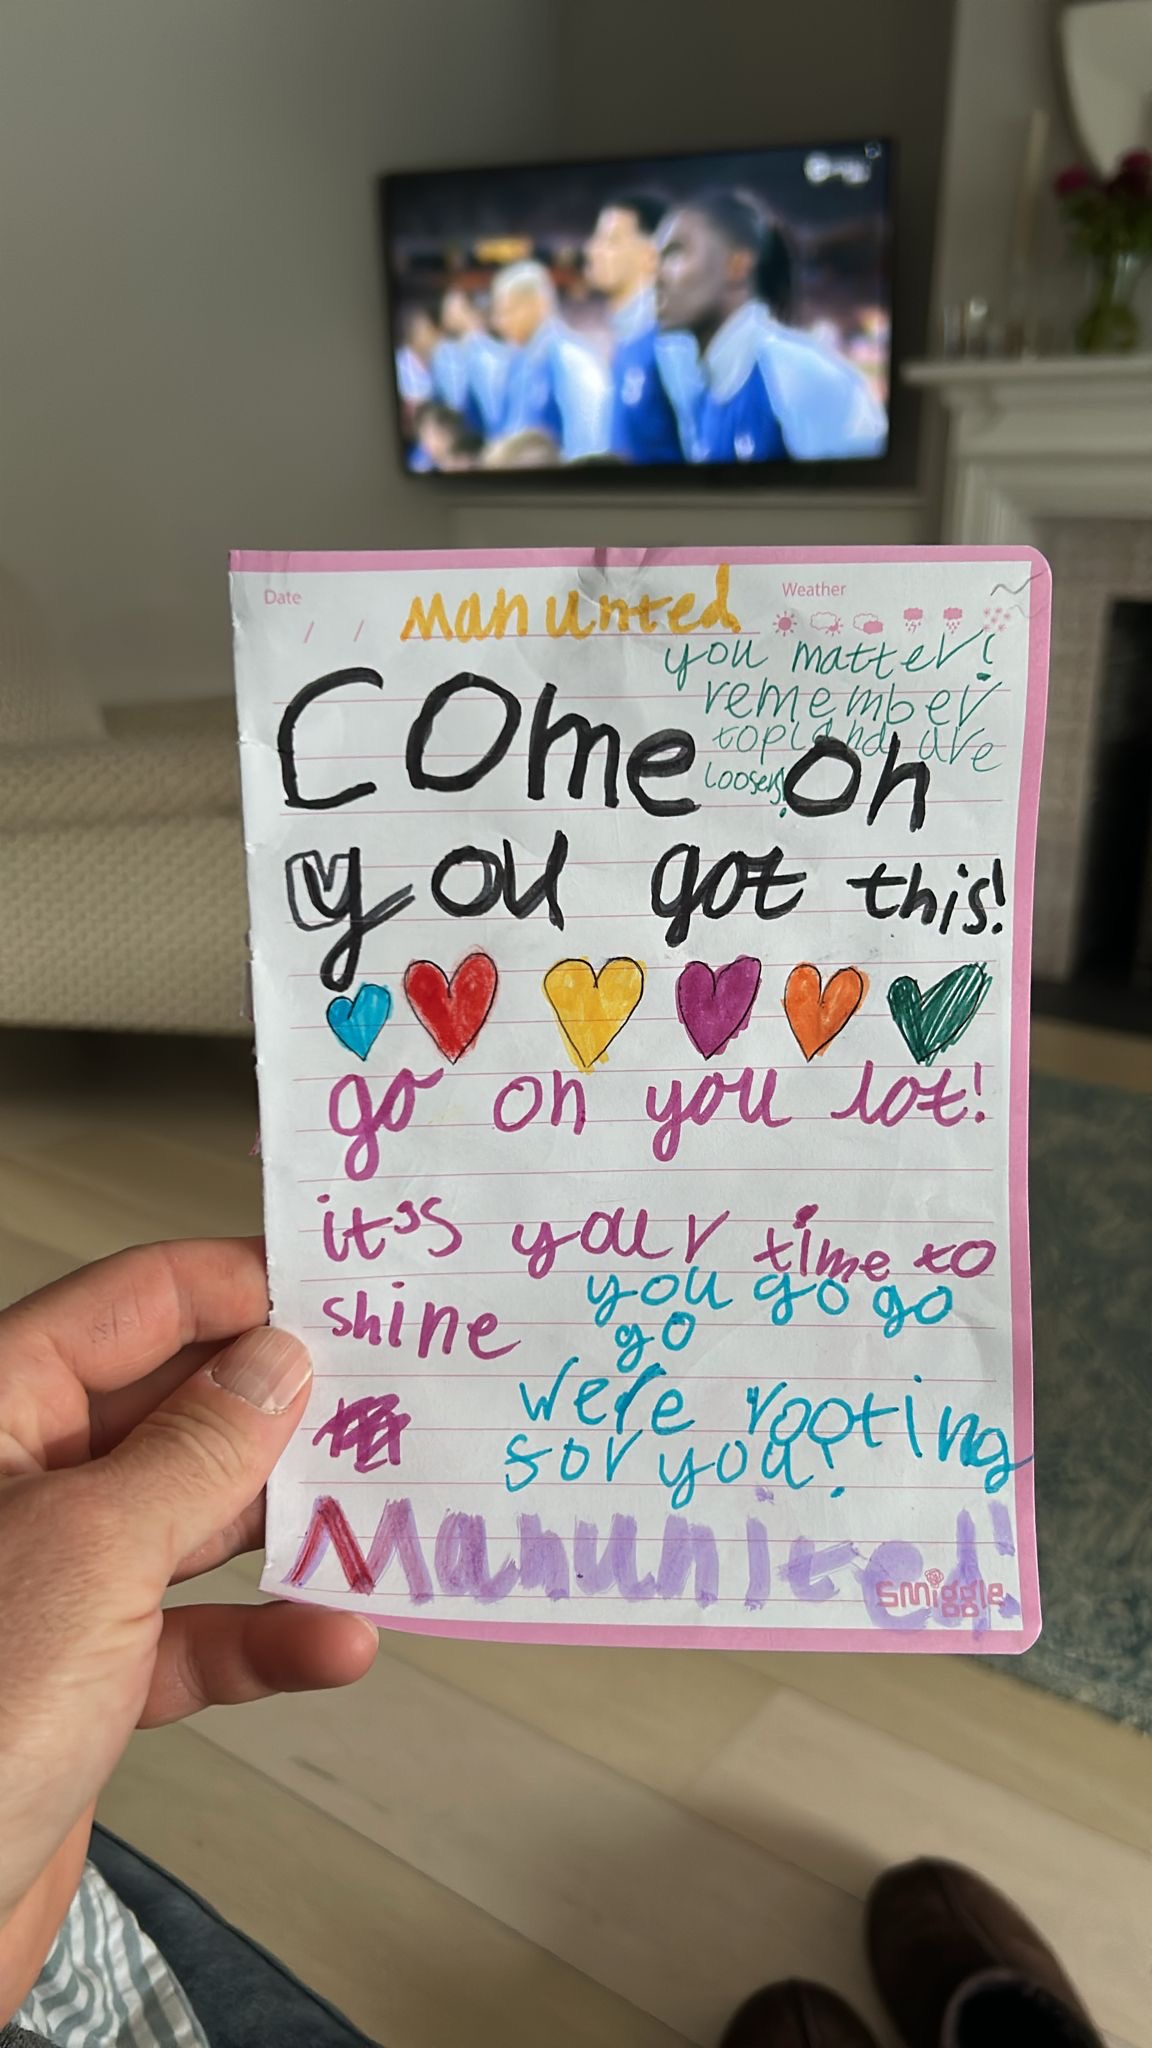 Date
Weather
/ /
Man unted
you matter!
remember
topland are
loosers!
Come on
you got this!
go on you lot!
it's your time to
shine
you go go
go
We're rooting
for you!
Man united!
smiggle